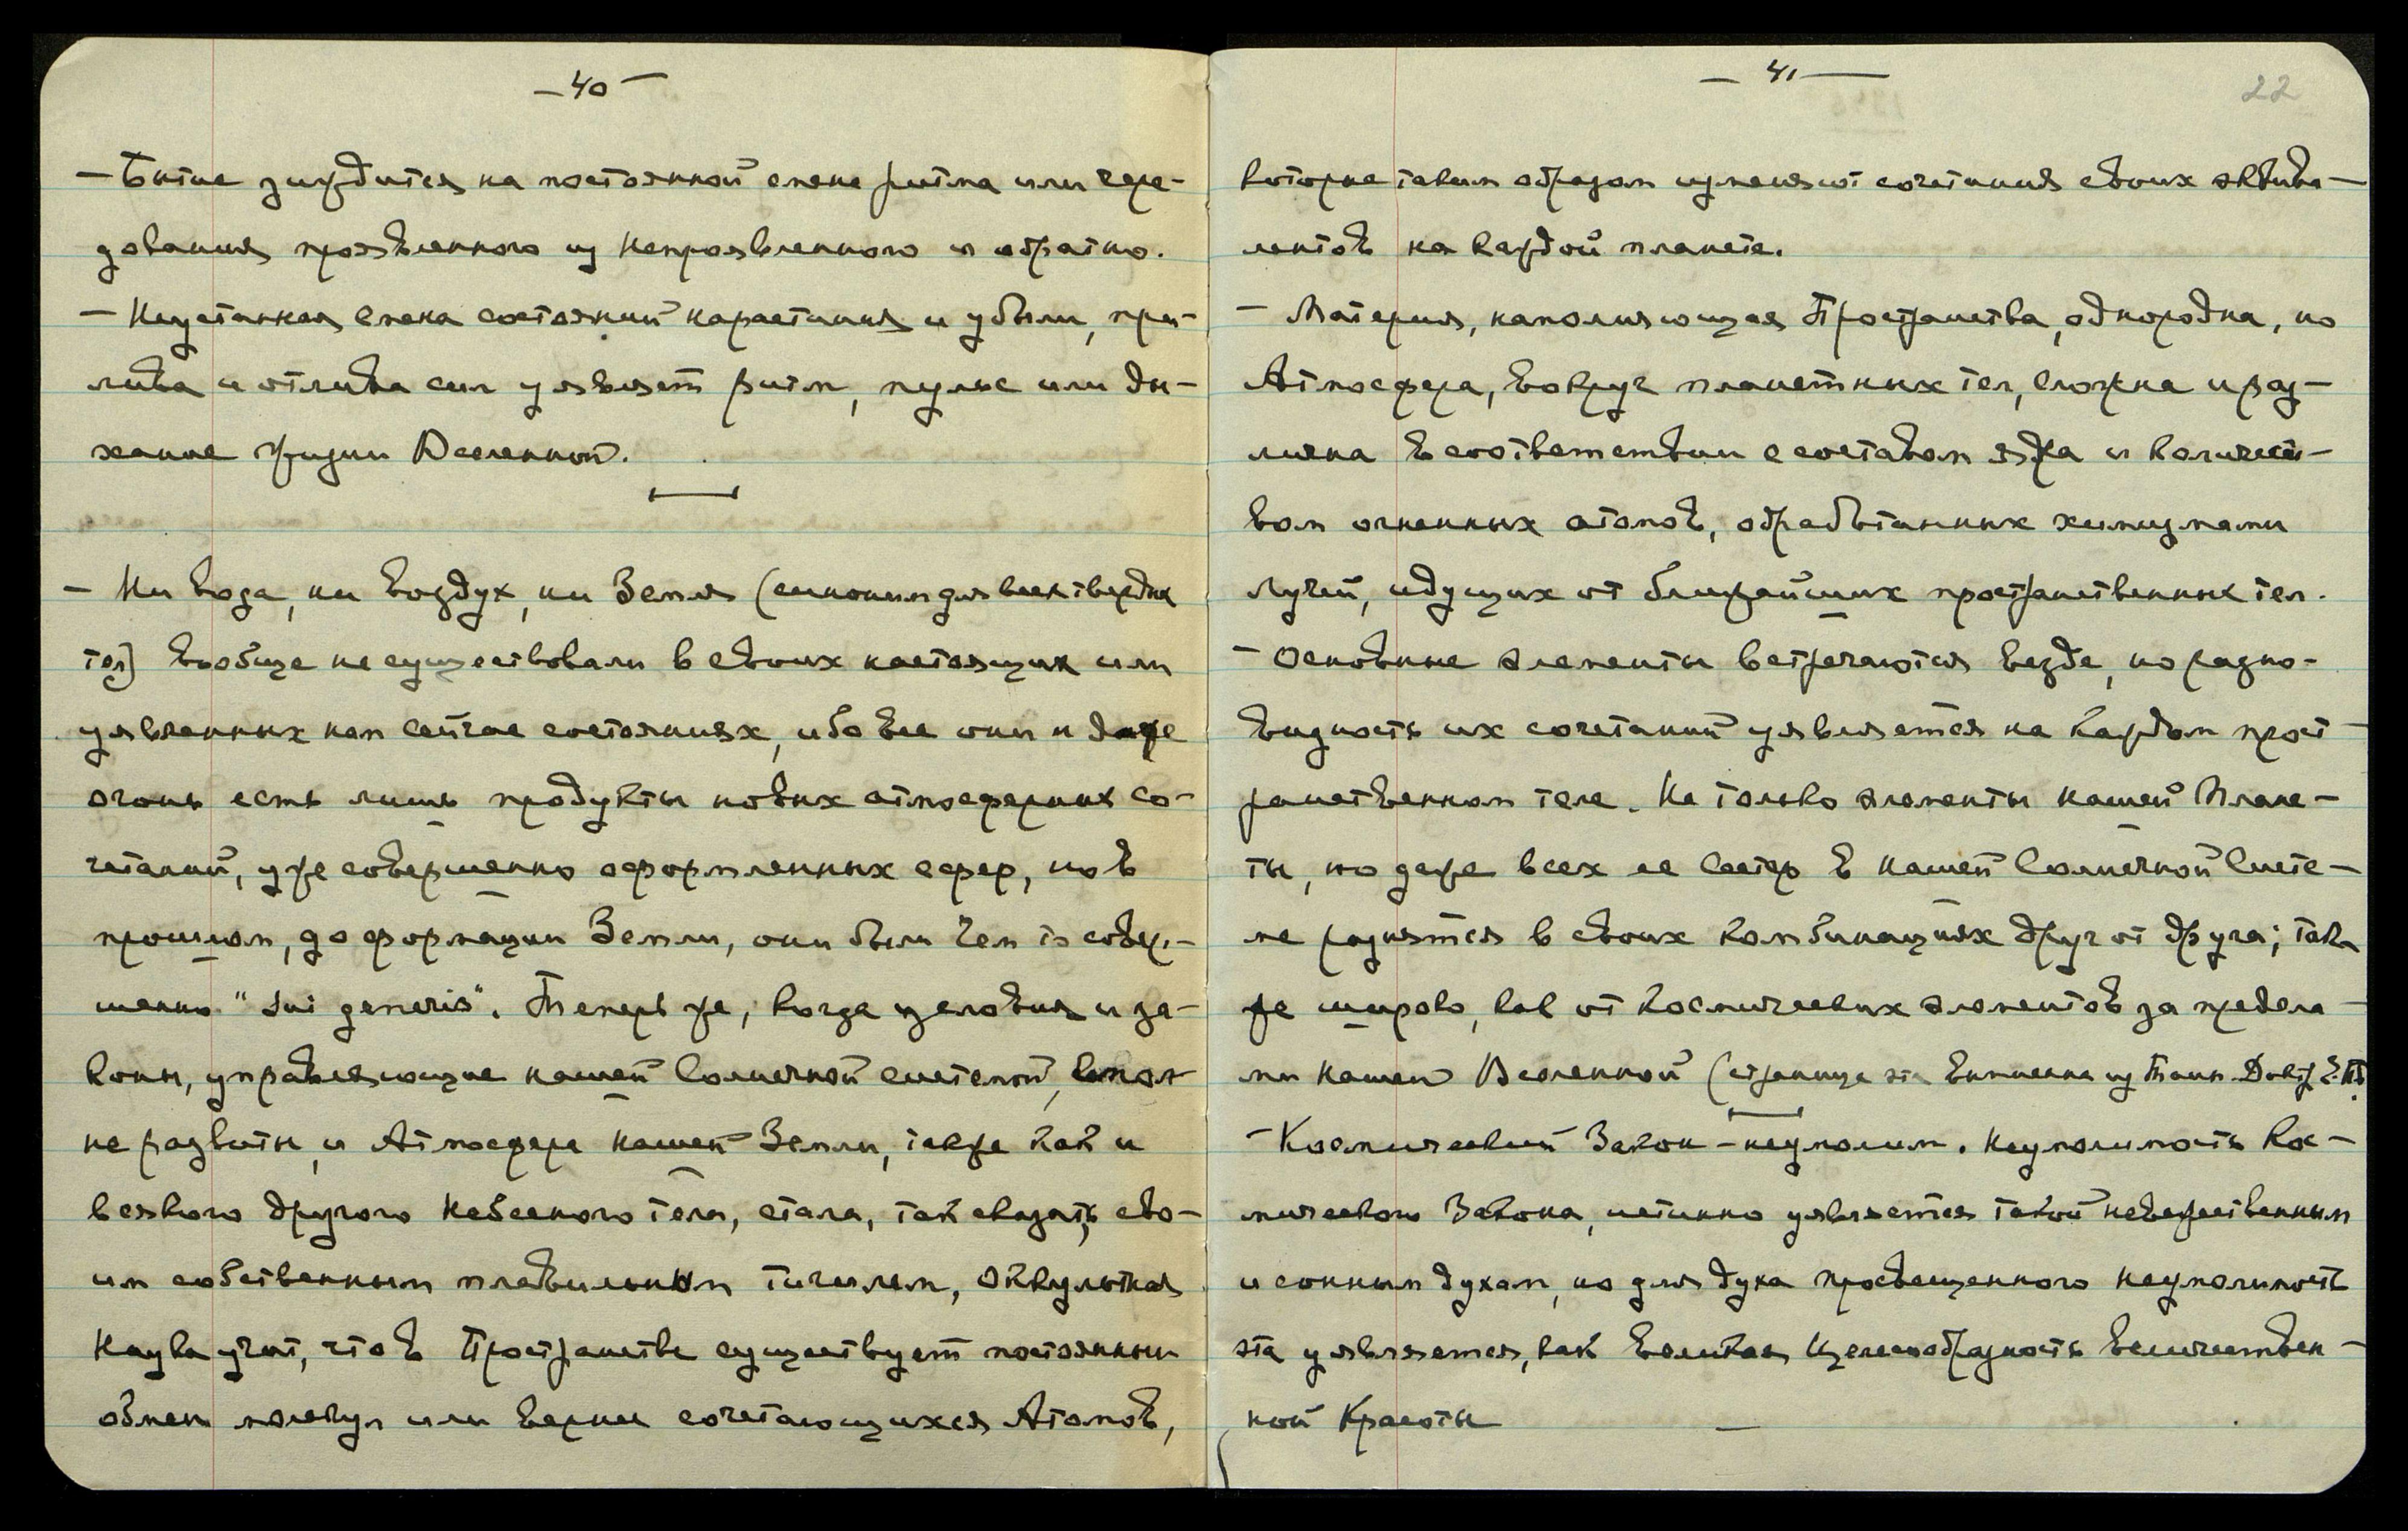 — 40 —
— Бытие зиждится на постоянной смене ритма или чере-
дования проявленного из Непроявленного и обратно.
— Неустанная смена состояний нарастания и убыли, при-
лива и отлива сил уявляет ритм, пульс или ды-
хание жизни Вселенной.
— Ни вода, ни воздух, ни Земля (синоним для всех твердых
тел) вообще не существовали в своих настоящих или
уявленных нам сейчас состояниях, ибо все они и даже
огонь есть лишь продукты новых атмосферных со-
четаний, уже совершенно оформленных сфер, но в
прошлом, до формации Земли, они были чем то совер-
шенно "sui generis". Теперь же, когда условия и за-
коны, управляющие нашей Солнечной системой,
не развиты, и Атмосфера нашей Земли, также как и
всякого другого Небесного тела, стала, так сказать, сво-
им собственным плавильным тиглем, Оккультная
Наука учит, что в Пространстве существует постоянный
обмен молекул или вернее сочетающихся Атомов,
— 41 —
22
которые таким образом изменяют сочетания своих эквива-
лентов на каждой планете.
— Материя, наполняющая Пространства, однородна, но
Атмосфера, вокруг планетных тел, сложна и раз-
лична в соответствии с составом ядра и количест-
вом огненных атомов, обработанных химизмами
лучей, идущих от ближайших пространственных тел.
— Основные элементы встречаются везде, но разно-
видность их сочетаний уявляется на каждом прост-
ранственном теле. Не только элементы нашей Плане-
ты, но даже всех ее Сестер в нашей Солнечной Систе-
ме разнятся в своих комбинациях друг от друга; так
же широко, как от Космических элементов за предела-
ми нашей Вселенной (страница эта выписана из Тайн. Докт. Е.П.Б.
— Космический Закон — неумолим. Неумолимость Кос-
мического Закона, истинно уявляется такой невежественным
и сонным духам, но для духа просвещенного неумолимость
эта уявляется, как великая Целесообразность величествен-
ной Красоты